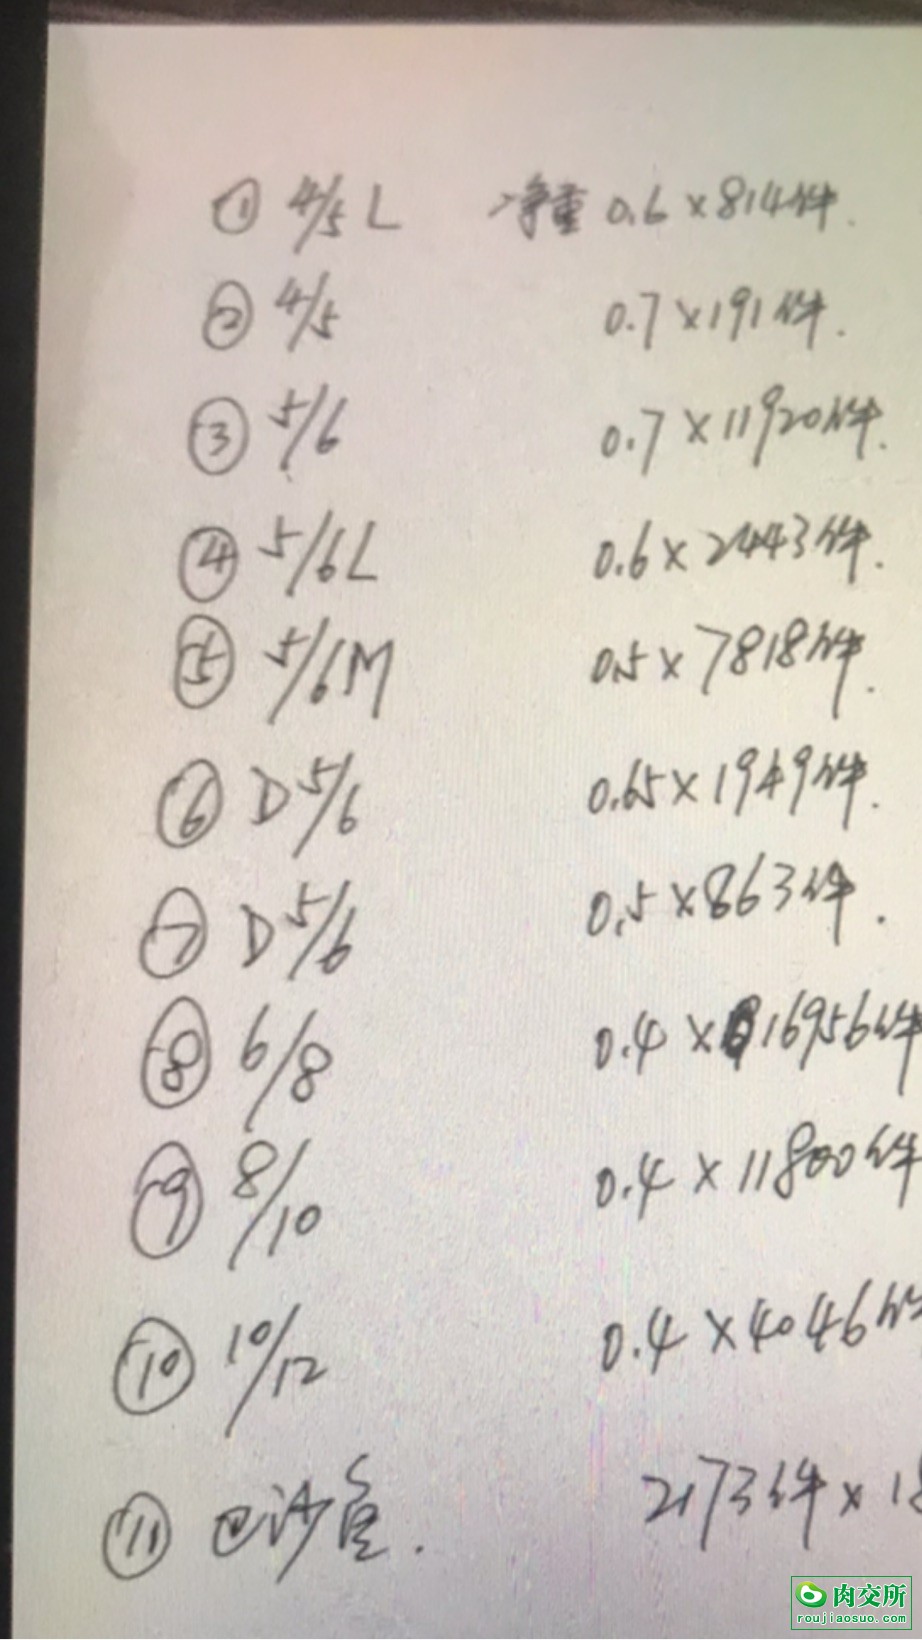 ① 4/5 L 净重 0.6 × 814件.
② 4/5 0.7 × 191件.
③ 5/6 0.7 × 11920件.
④ 5/6L 0.6 × 2443件.
⑤ 5/6M 0.5 × 7818件.
⑥ D 5/6 0.65 × 1949件.
⑦ D 5/6 0.5 × 863件.
⑧ 6/8 0.4 × 16956件
⑨ 8/10 0.4 × 11800件
⑩ 10/12 0.4 × 4046件
⑪ 巴沙鱼. 2173件 × 18
肉交所
roujiaosuo.com